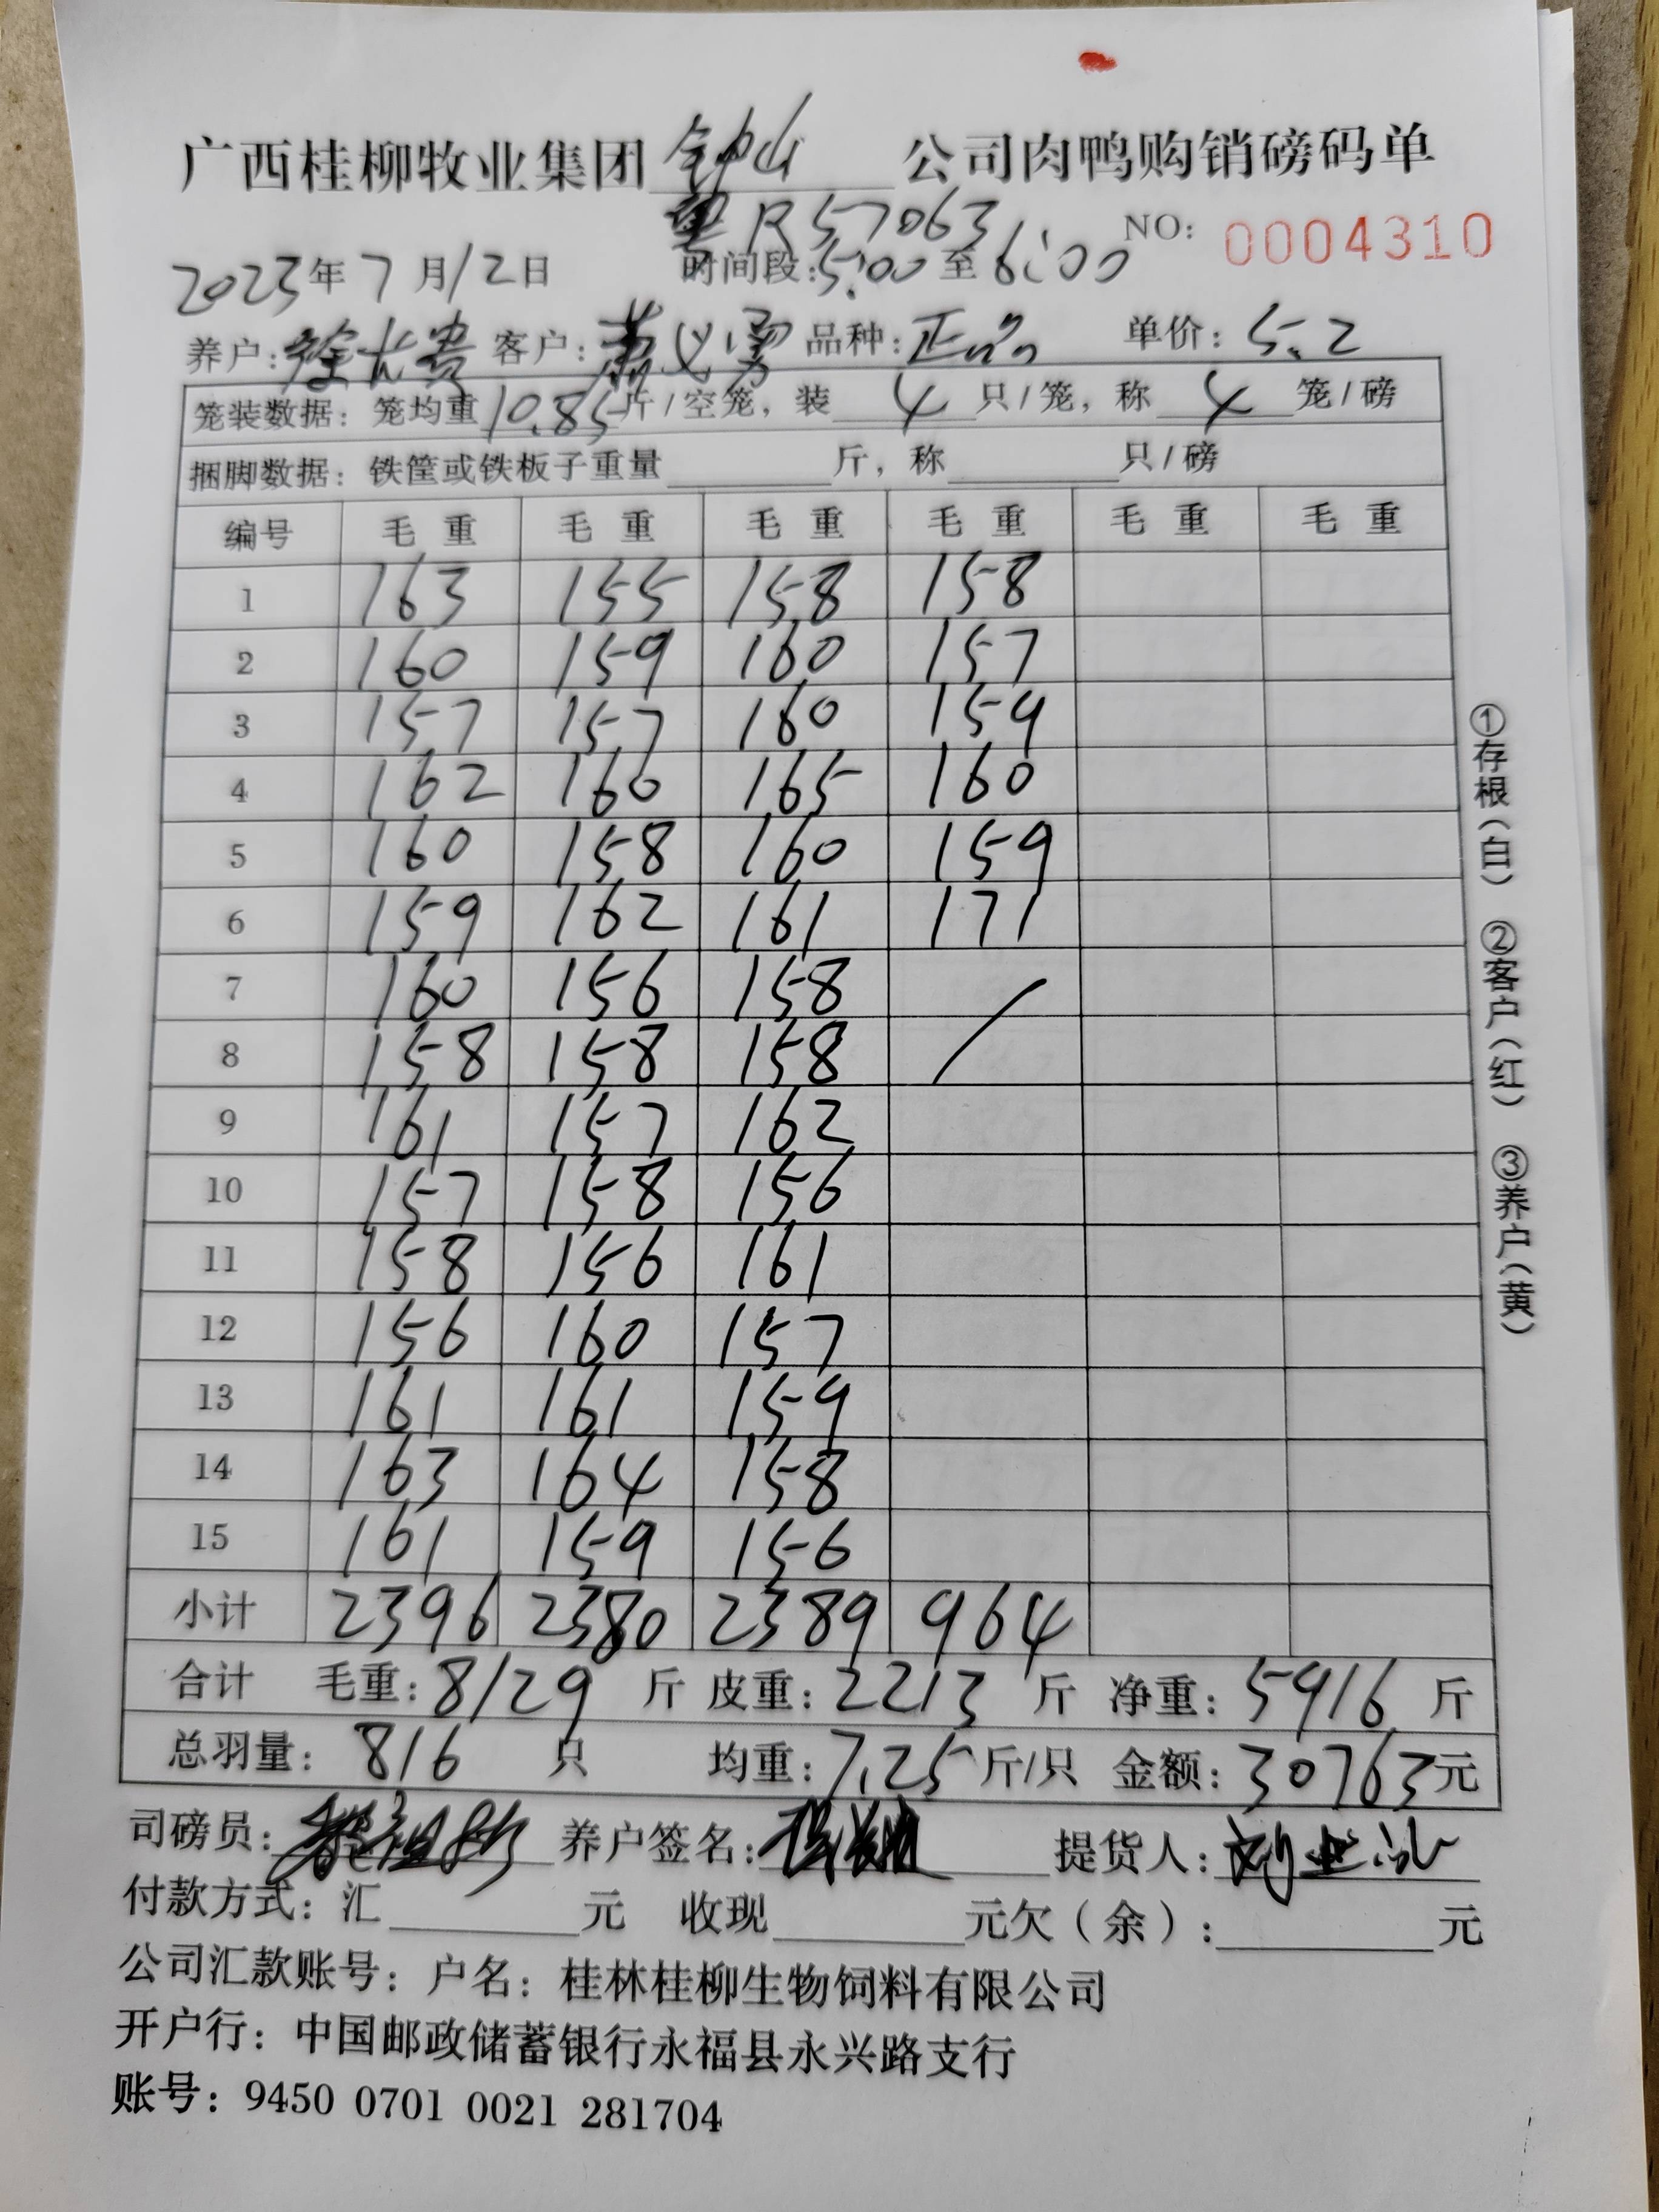 广西桂柳牧业集团 钟山 公司肉鸭购销磅码单
粤R57063
NO: 0004310
2023年7月12日 时间段:5:00至6:00
养户:徐长贵 客户:萧义勇 品种:正品 单价:5.2
笼装数据: 笼均重10.85斤/空笼, 装4只/笼, 称4笼/磅
捆脚数据: 铁筐或铁板子重量 斤, 称 只/磅
编号 毛重 毛重 毛重 毛重 毛重 毛重
1 163 155 158 158
2 160 159 160 157
3 157 157 160 159
4 162 160 165 160
5 160 158 160 159
6 159 162 161 171
7 160 156 158
8 158 158 158
9 161 157 162
10 157 158 156
11 158 156 161
12 156 160 157
13 161 161 159
14 163 164 158
15 161 159 156
小计 2396 2380 2389 964
合计 毛重:8129 斤 皮重:2213 斤 净重:5916 斤
总羽量:816 只 均重:7.25斤/只 金额:30763元
司磅员: 养户签名: 提货人:
付款方式: 汇 元 收现 元欠(余): 元
公司汇款账号: 户名: 桂林桂柳生物饲料有限公司
开户行: 中国邮政储蓄银行永福县永兴路支行
账号: 9450 0701 0021 281704
①存根(白) ②客户(红) ③养户(黄)